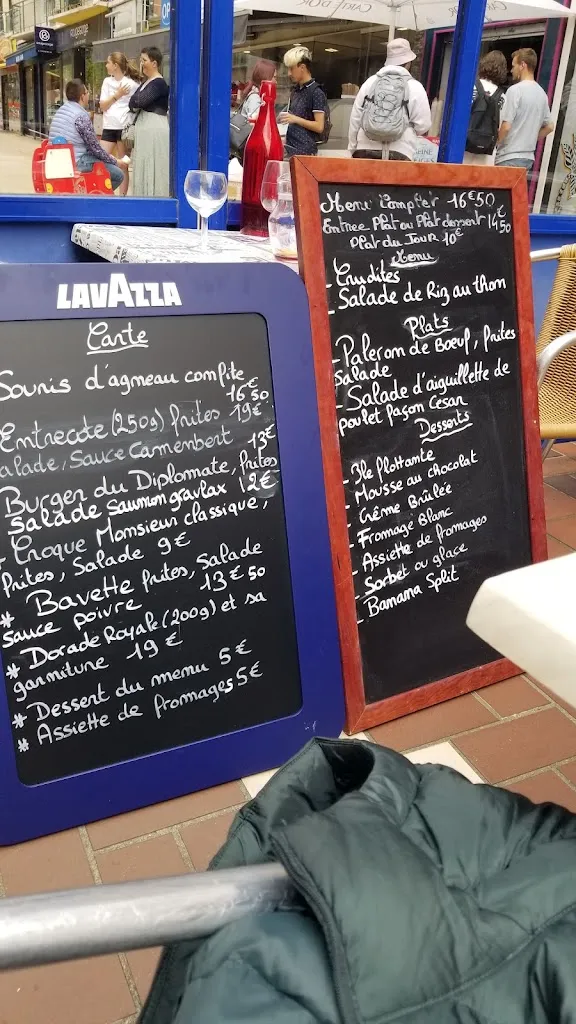 LAVAZZA
Carte
Souris d'agneau confite
16€50
Entrecote (250g) frites 19€
Salade, Sauce Camembert
13€
Burger du Diplomate, frites
Salade Saumon gravlax 12€
Croque Monsieur classique,
frites, Salade 9€
* Bavette frites, Salade
Sauce poivre 13€50
* Dorade Royale (200g) et sa
garniture 19€
* Dessert du menu 5€
* Assiette de fromages 5€
Menu Complet 16€50
Entree Plat ou Plat dessert 14€50
Plat du Jour 10€
Menu
- Crudites
- Salade de Riz au thon
Plats
- Paleron de Boeuf, frites
Salade
- Salade d'aiguillette de
poulet façon César
Desserts
- Ile flottante
- Mousse au chocolat
- Crême Brûlée
- Fromage Blanc
- Assiette de fromages
- Sorbet ou glace
- Banana Split
CARTE D'OR